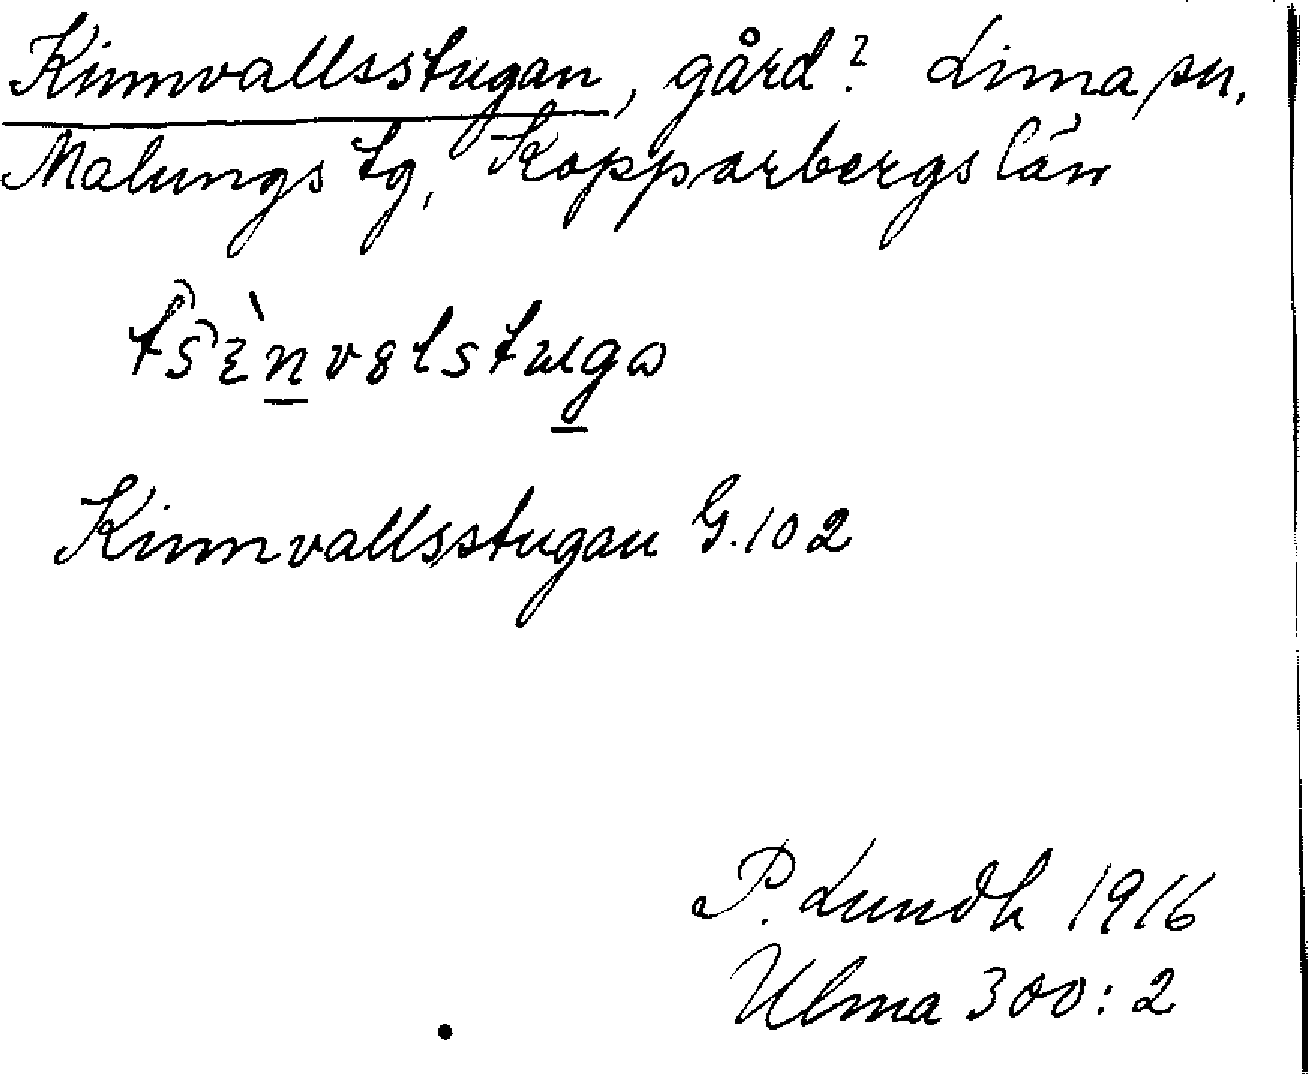 Kinnvallsstugan, gård? Lima sn,
Malungs tg, Kopparbergs län
Kinnvallsstugan G.102
P. Lundh 1916
Ulma 300:2